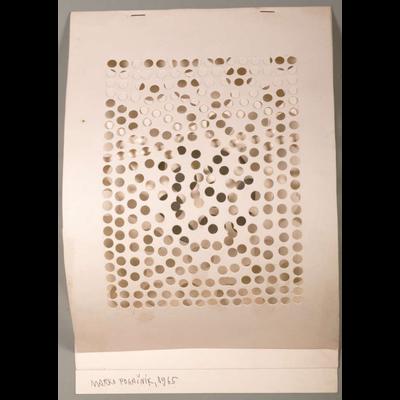 MARKO POGAČNIK, 1965